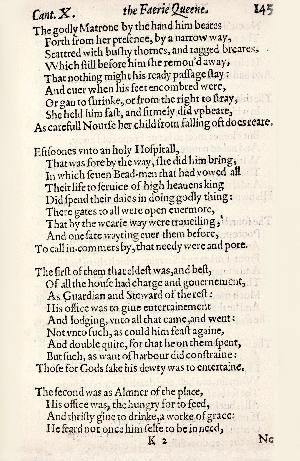 Cant. X. the Faerie Queene. 145
The godly Matrone by the hand him beares
Forth from her presence, by a narrow way,
Scattred with bushy thornes, and ragged breares,
Which still before him she remou'd away,
That nothing might his ready passage stay:
And euer when his feet encombred were,
Or gan to shrinke, or from the right to stray,
She held him fast, and firmely did vpbeare,
As carefull Nourse her child from falling oft does reare.
Eftsoones vnto an holy Hospitall,
That was fore by the way, she did him bring,
In which seuen Bead-men that had vowed all
Their life to seruice of high heauens king
Did spend their daies in doing godly thing:
There gates to all were open euermore,
That by the wearie way were traueiling,
And one sate wayting euer them before,
To call in-commers by, that needy were and pore.
The first of them that eldest was, and best,
Of all the house had charge and gouernement,
As Guardian and Steward of the rest:
His office was to giue entertainement
And lodging, vnto all that came, and went:
Not vnto such, as could him feast againe,
And double quite, for that he on them spent,
But such, as want of harbour did constraine:
Those for Gods sake his dewty was to entertaine.
The second was as Almner of the place,
His office was, the hungry for to feed,
And thristy giue to drinke, a worke of grace:
He feard not once him selfe to be in need,
K 2 Ne